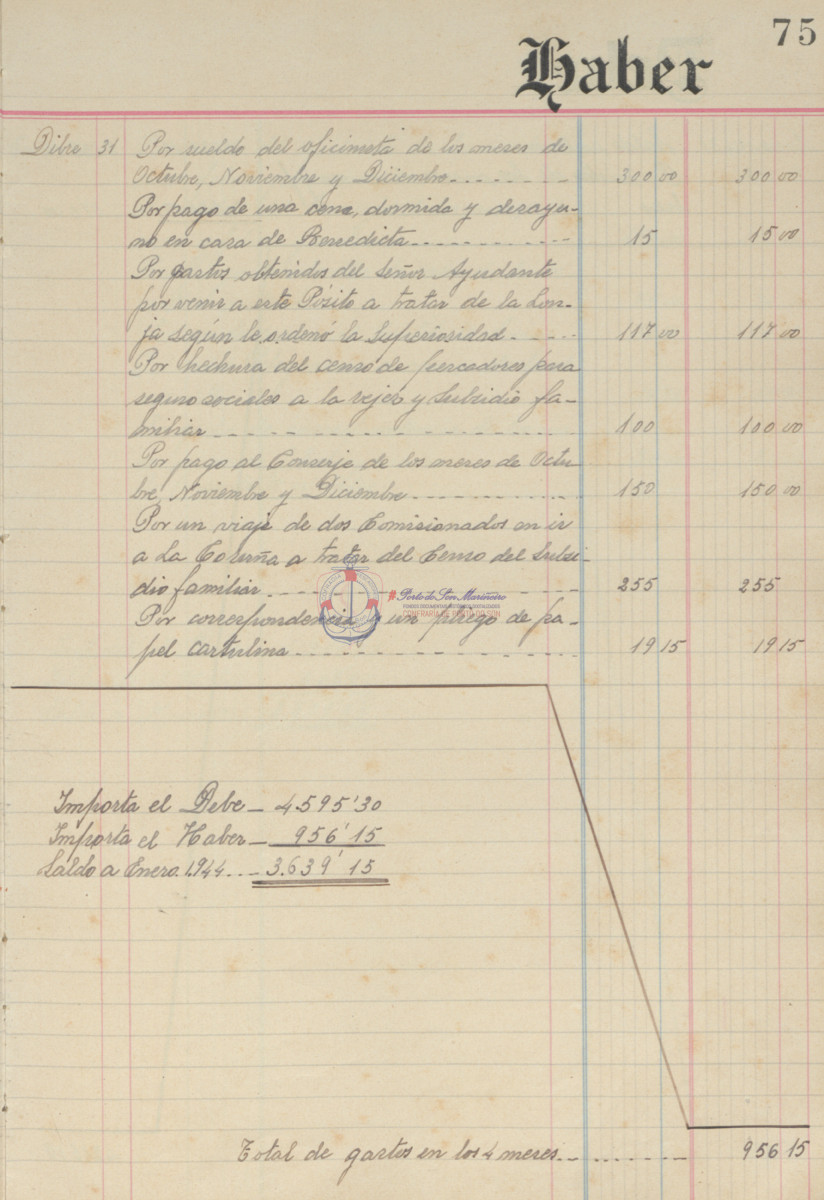 75
Haber
Dibre 31 Por sueldo del oficinista de los meses de
Octubre, Noviembre y Diciembre 300 00 300 00
Por pago de una cena, dormida y desayu-
no en casa de Benedicta 15 15 00
Por gastos obtenidos del Señor Ayudante
por venir a este Pósito a tratar de la Lon-
ja según le ordenó la Superioridad 117 00 117 00
Por hechura del censo de pescadores para
seguro sociales a la vejez y Subsidio fa-
miliar 100 100 00
Por pago al Conserje de los meses de Octu-
bre, Noviembre y Diciembre 150 150 00
Por un viaje de dos Comisionados en ir
a La Coruña a tratar del Censo del Subsi-
dio familiar 255 255
Por correspondencia y un pliego de pa-
pel cartulina 19 15 19 15
#Porto do Son Mariñeiro
CONFRARÍA DE PORTO DO SON
Importa el Debe 4.595'30
Importa el Haber 956'15
Saldo a Enero 1.944 3.639'15
Total de gastos en los 4 meses 956 15